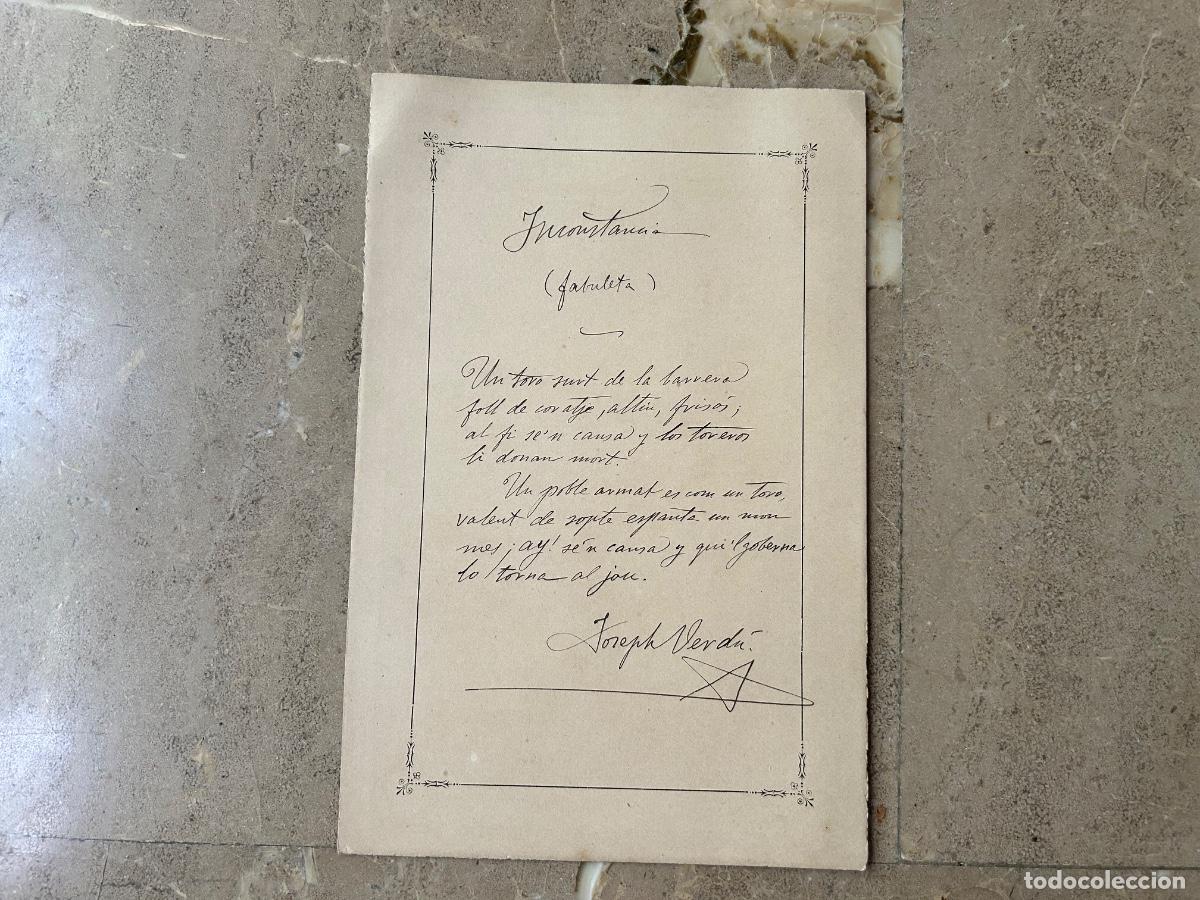 Inconstancia
(fabuleta)
Un toro surt de la barrera
foll de coratje, altiu, frisós;
al fi se'n cansa y los toreros
li donan mort.
Un poble armat es com un toro,
valent de sopte espanta un mon
mes ¡ay! se'n cansa y qui'l goberna
lo torna al jou.
Joseph Verdú.
todocoleccion